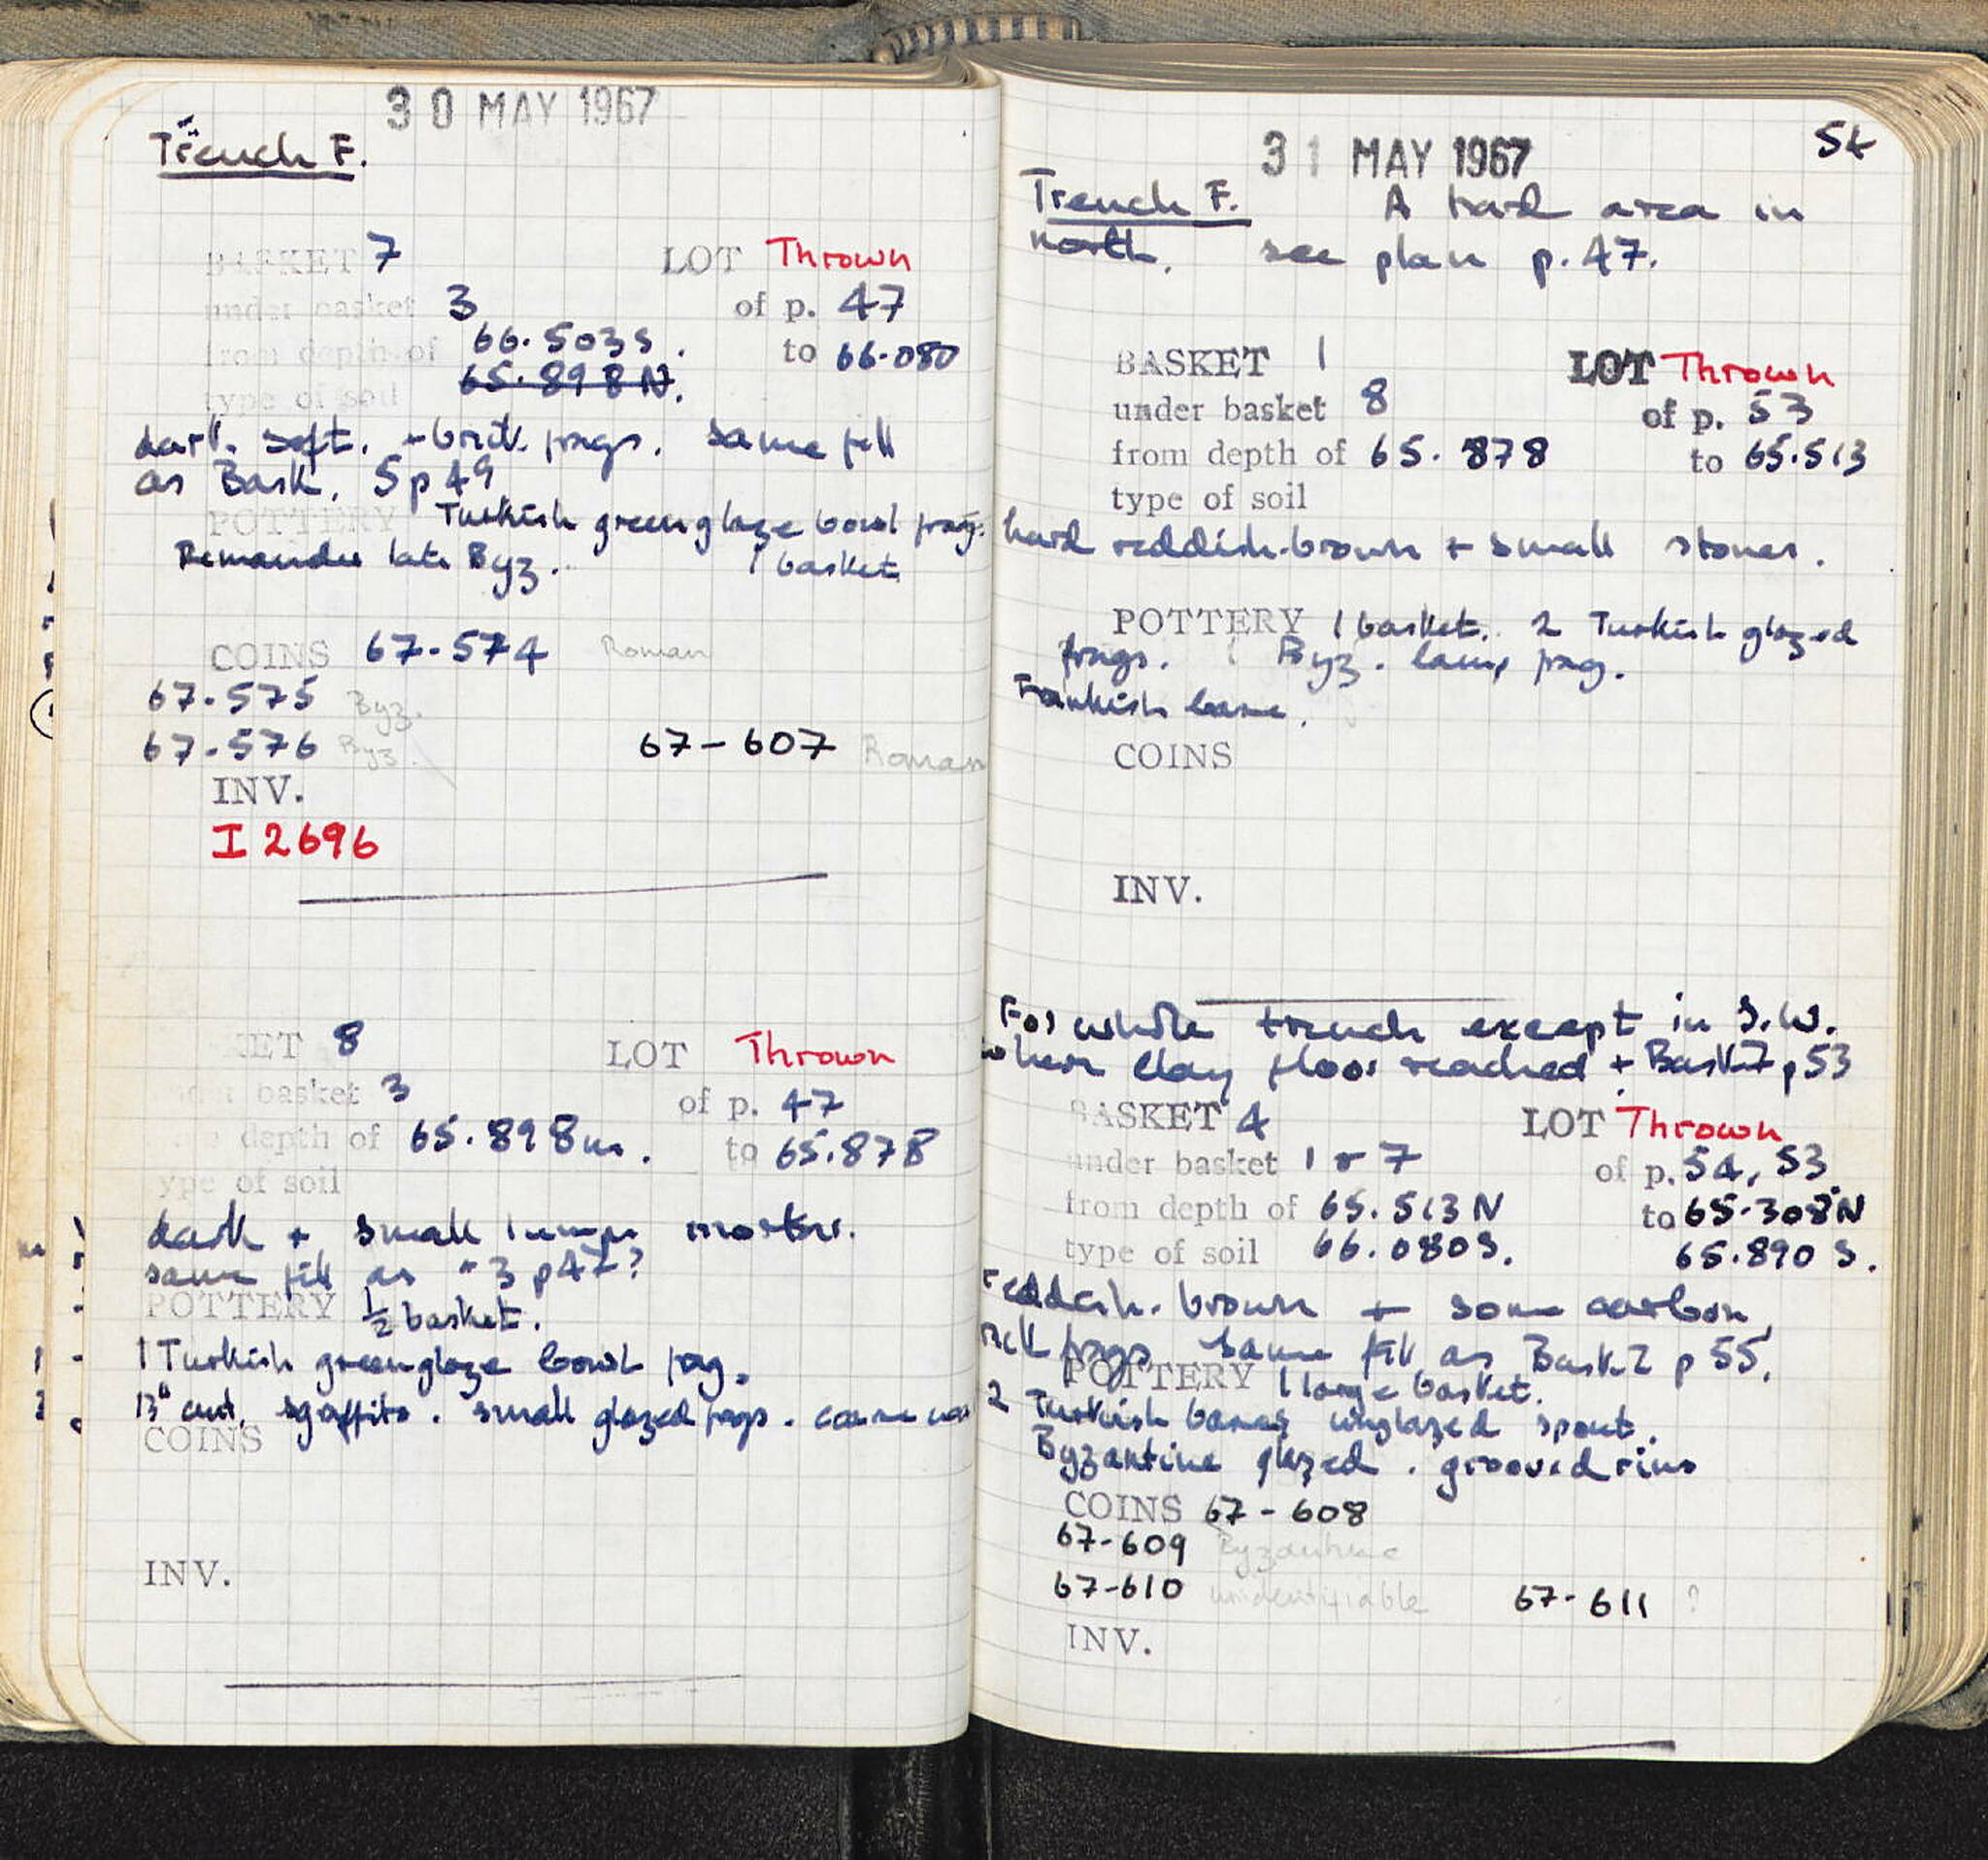 30 MAY 1967
Trench F.
BASKET 7 LOT Thrown
under basket 3 of p. 47
from depth of 66.503 S. to 66.080
65.898 N.
type of soil
dark. soft. + brick frags. same fill
as Bask. 5 p 49
POTTERY Turkish green glaze bowl frag.
Remainder late Byz. 1 basket
COINS 67-574 Roman
67-575 Byz.
67-576 Byz. 67-607 Roman
INV.
I 2696
KET 8 LOT Thrown
under basket 3 of p. 47
depth of 65.898 m. to 65.878
ype of soil
dark + small lumps mortar.
same fill as " 3 p 47?
POTTERY 1/2 basket.
1 Turkish green glaze bowl frag.
13th cent. sgraffito. small glazed frags. coarse
COINS
INV.
54
31 MAY 1967
Trench F. A hard area in
north. see plan p. 47.
BASKET 1 LOT Thrown
under basket 8 of p. 53
from depth of 65.878 to 65.513
type of soil
hard reddish-brown + small stones.
POTTERY 1 basket. 2 Turkish glazed
frags. 1 Byz. lamp frag.
Frankish base.
COINS
INV.
For whole trench except in S.W.
where clay floor reached + Bask 7 p 53
BASKET 4 LOT Thrown
under basket 1 + 7 of p. 54, 53
from depth of 65.513 N to 65.308 N
type of soil 66.080 S. 65.890 S.
reddish-brown + some carbon,
frags same fill as Bask. 2 p 55.
POTTERY 1 large basket.
2 Turkish bases unglazed spout.
Byzantine glazed. grooved rims
COINS 67-608
67-609 Byzantine
67-610 unidentifiable 67-611 ?
INV.